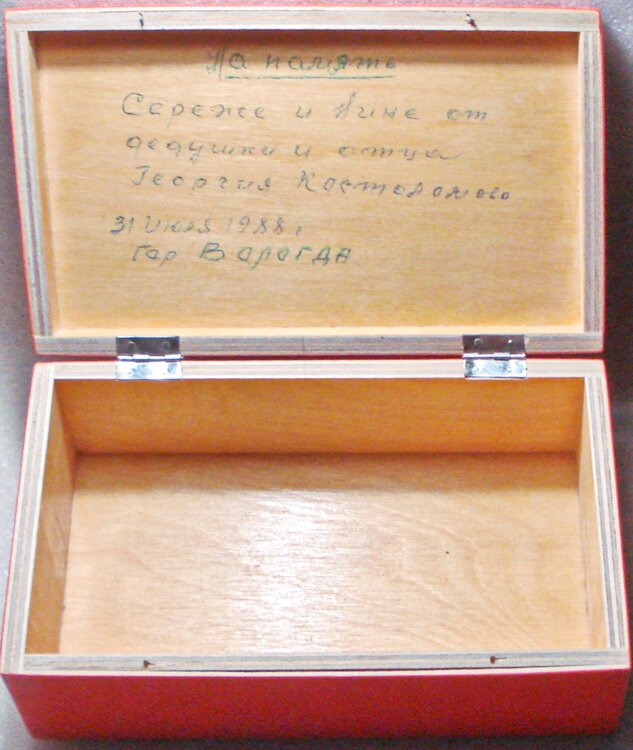 На память
Сереже и Нине от
дедушки и отца
Георгия
31 июля 1988 г
гор Вологда